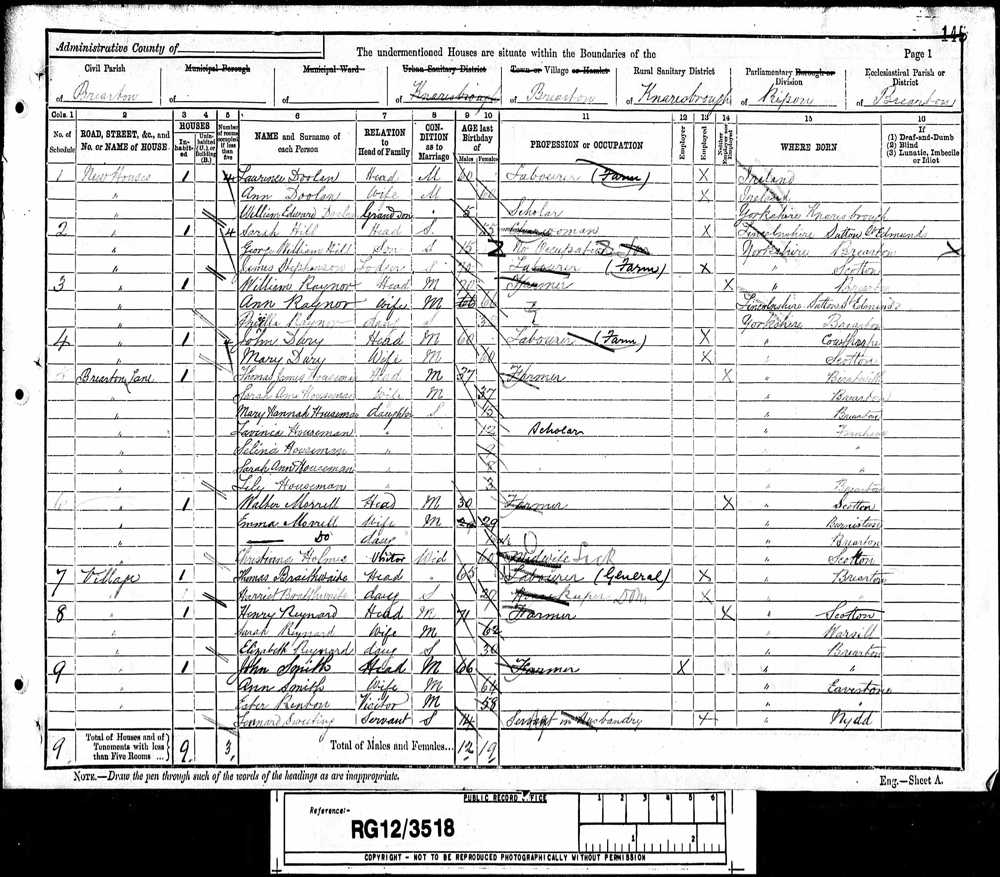 146
Administrative County of
The undermentioned Houses are situate within the Boundaries of the
Page 1
Civil Parish of Brearton
Municipal Borough of
Municipal Ward of
Urban Sanitary District of Knaresbrough
Town or Village or Hamlet of Brearton
Rural Sanitary District of Knaresbrough
Parliamentary Borough or Division of Ripon
Ecclesiastical Parish or District of Brearton
Cols. 1 2 3 4 5 6 7 8 9 10 11 12 13 14 15 16
No. of Schedule
ROAD, STREET, &c., and No. or NAME of HOUSE
HOUSES
In-habit-ed
Uninhabited (U.), or Building (B.)
Number of rooms occupied if less than five
NAME and Surname of each Person
RELATION to Head of Family
CON-DITION as to Marriage
AGE last Birthday of
Males Females
PROFESSION or OCCUPATION
Employer
Employed
Neither Employer nor Employed
WHERE BORN
If (1) Deaf-and-Dumb (2) Blind (3) Lunatic, Imbecile or Idiot
1 New Houses 1 4 Laurence Doolan Head M 60 Labourer (Farm) X Ireland
" Ann Doolan Wife M 60 X Ireland
" William Edward Doolan Grandson 5 Scholar Yorkshire Knaresbrough
2 " 1 4 Sarah Hill Head S Lincolnshire Sutton St Edmunds
" George William Hill Son S 15 No Occupation Yorkshire Brearton X
" James Stephenson Lodger S Labourer (Farm) X " Scotton
3 " 1 William Raynor Head M 70 Farmer X " Brearton
" Ann Raynor Wife M 66 66 Lincolnshire Sutton St Edmunds
" Raynor daug S Yorkshire Brearton
4 " 1 4 John Dary Head M 60 Labourer (Farm) X "
" Mary Dary Wife M 60 X " Scotton
Brearton Lane 1 Thomas James Houseman Head M 37 Farmer X "
" Sarah Ann Houseman Wife M 37 " Brearton
" Mary Hannah Houseman daughter S 15 " Brearton
" Lavinia Houseman " 12 Scholar "
" Selina Houseman " "
" Sarah Ann Houseman " "
" Lily Houseman " 3 " Brearton
6 " 1 Walter Morrill Head M 30 Farmer X " Scotton
" Emma Morrill Wife M 29 29 "
" Do daug " Brearton
" Christiana Holmes Visitor Wid 60 Midwife Sick " Scotton
7 Village 1 Thomas Braithwaite Head " 65 Labourer (General) X " Brearton
" Harriet Braithwaite daug S 29 House Keeper Dom X "
8 " 1 Henry Reynard Head M 71 Farmer X " Scotton
" Sarah Reynard Wife M 62 " Warsill
" Elizabeth Reynard daug S 30 " Brearton
9 " 1 John Smith Head M 66 Farmer X " "
" Ann Smith Wife M 64 " Eavestone
" Ester Renton Visitor M 58 "
" Sweeting Servant S 14 Servant in Husbandry X " Nydd
9 Total of Houses and of Tenements with less than Five Rooms ... 9 3 Total of Males and Females... 12 19
NOTE.—Draw the pen through such of the words of the headings as are inappropriate.
Eng.—Sheet A.
PUBLIC RECORD OFFICE
1 2 3 4 5 6
Reference:-
RG12/3518
1 2
COPYRIGHT - NOT TO BE REPRODUCED PHOTOGRAPHICALLY WITHOUT PERMISSION